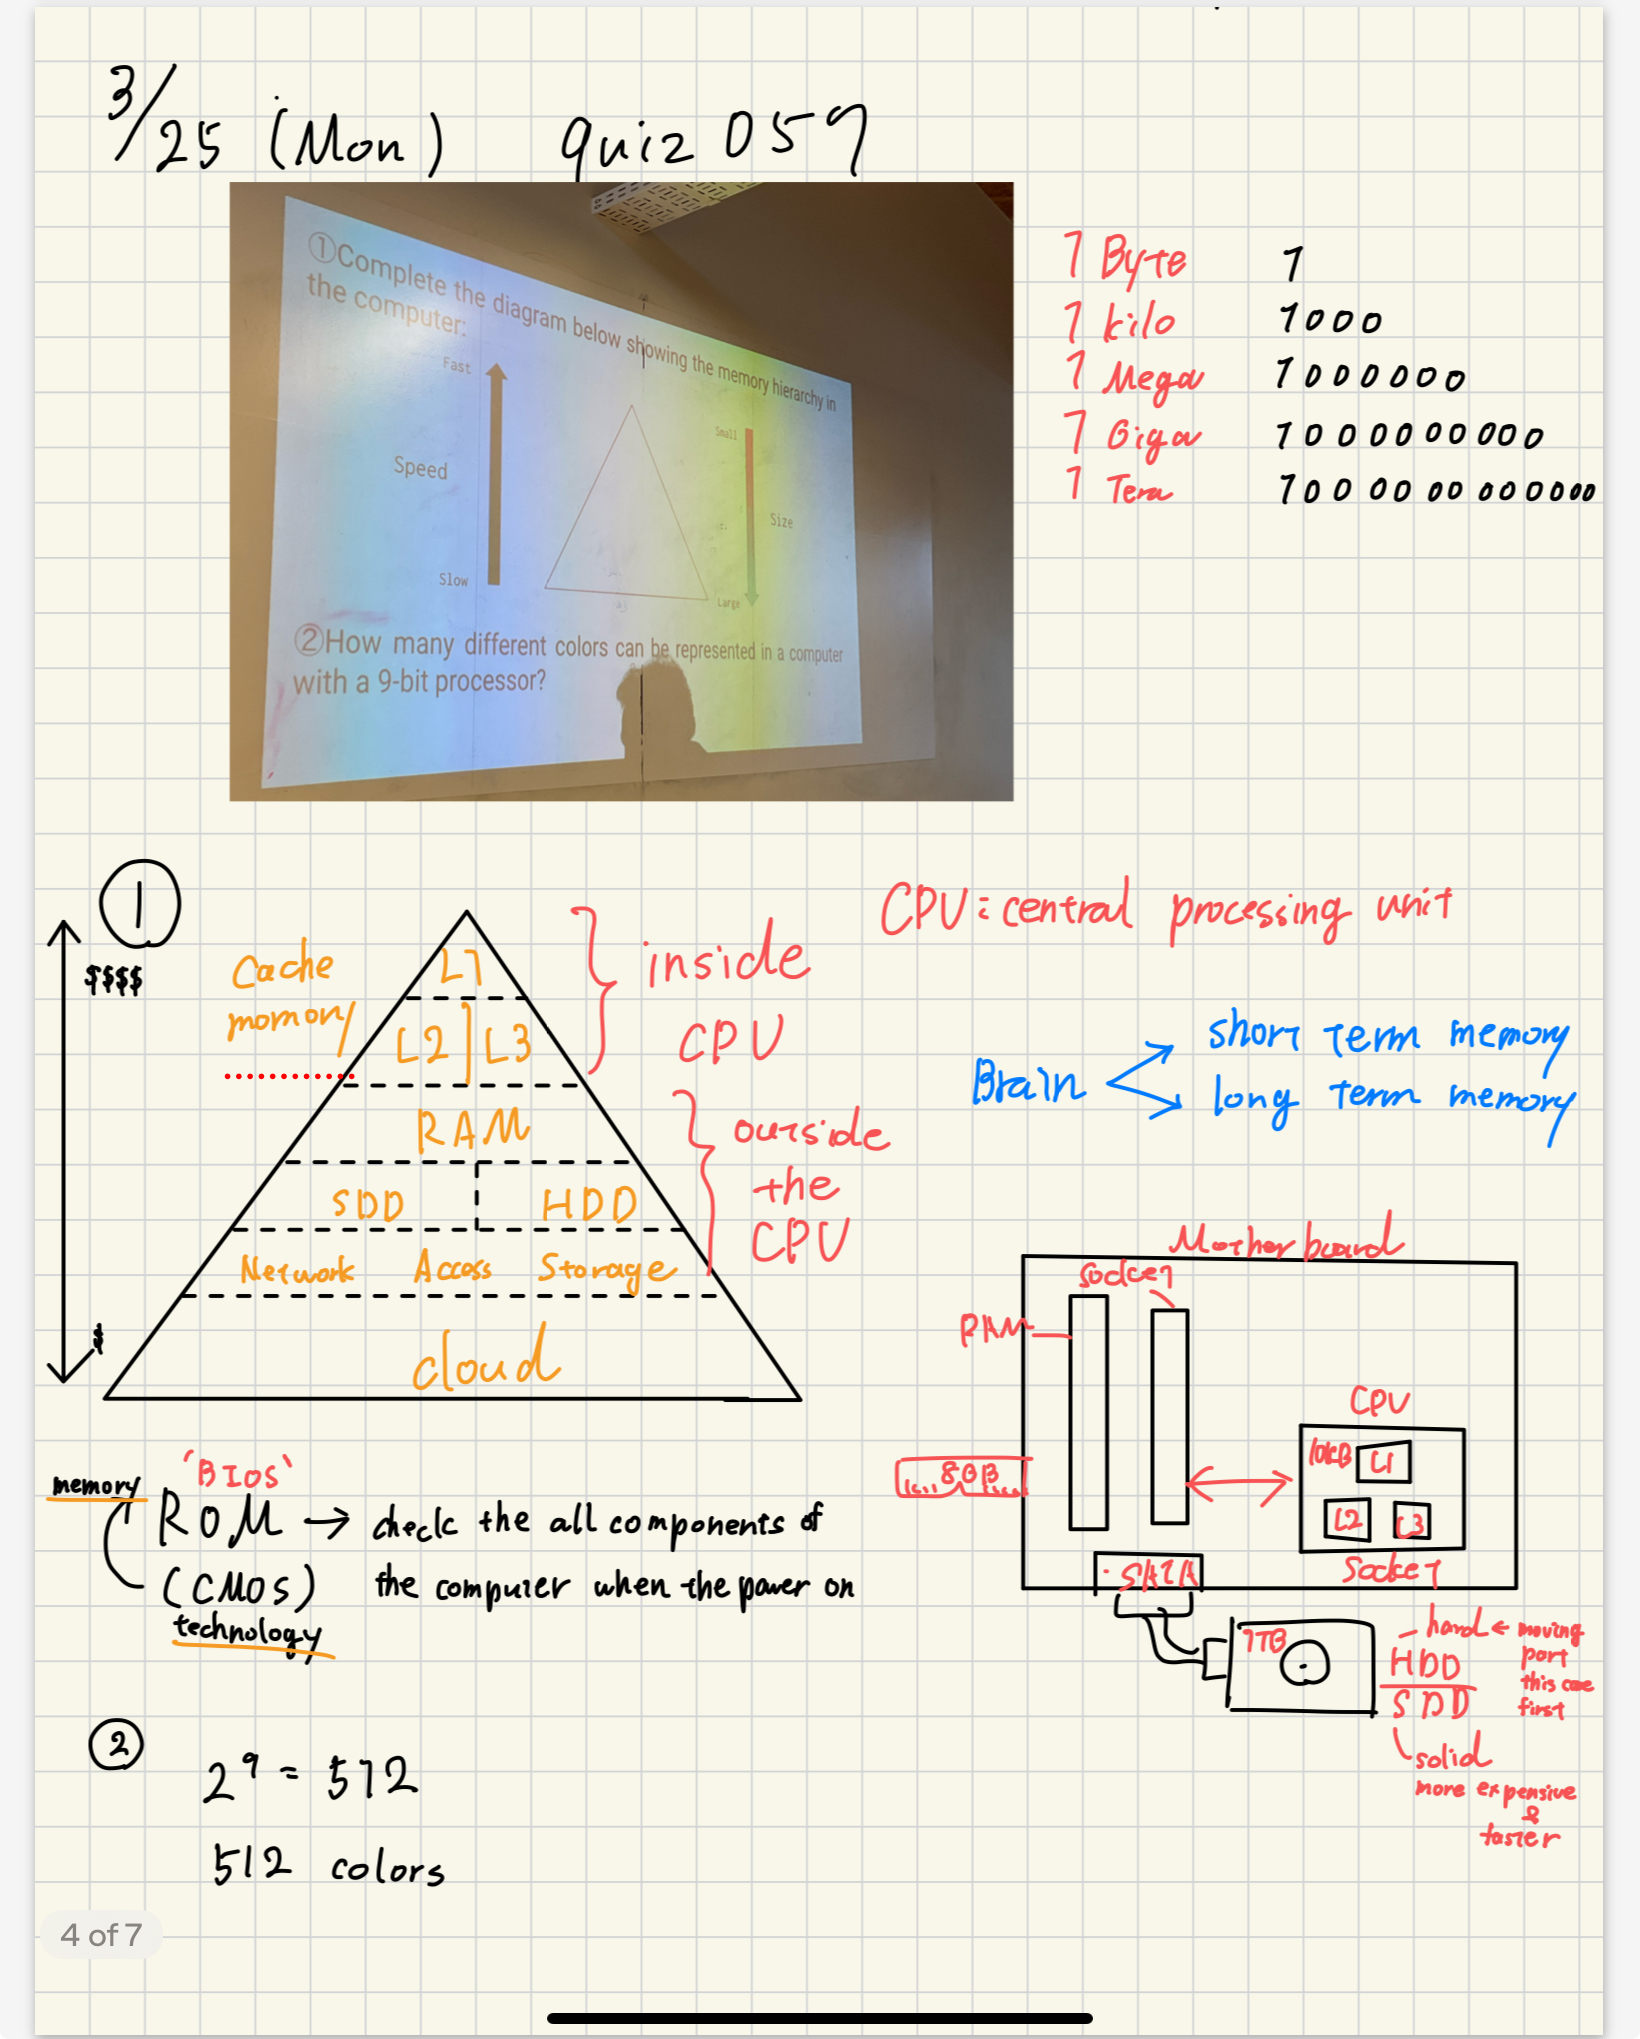 3/25 (Mon) quiz 059
①Complete the diagram below showing the memory hierarchy in
the computer:
Fast
Speed
Slow
Small
Size
Large
②How many different colors can be represented in a computer
with a 9-bit processor?
1 Byte 1
1 kilo 1000
1 Mega 1000000
1 Giga 1000000000
1 Tera 1000000000000
①
$$$$
$
Cache
momory
L1
L2 L3
RAM
SDD HDD
Network Access Storage
cloud
inside
CPU
outside
the
CPU
CPU: central processing unit
Brain
short term memory
long term memory
Motherboard
Socket
RAM
8GB
CPU
10KB L1
L2 L3
Socket
SATA
1TB
hard ← moving
part
this one
first
HDD
SDD
solid
more expensive
&
faster
memory
'BIOS'
ROM → check the all components of
(CMOS) the computer when the power on
technology
②
2⁹ = 512
512 colors
4 of 7